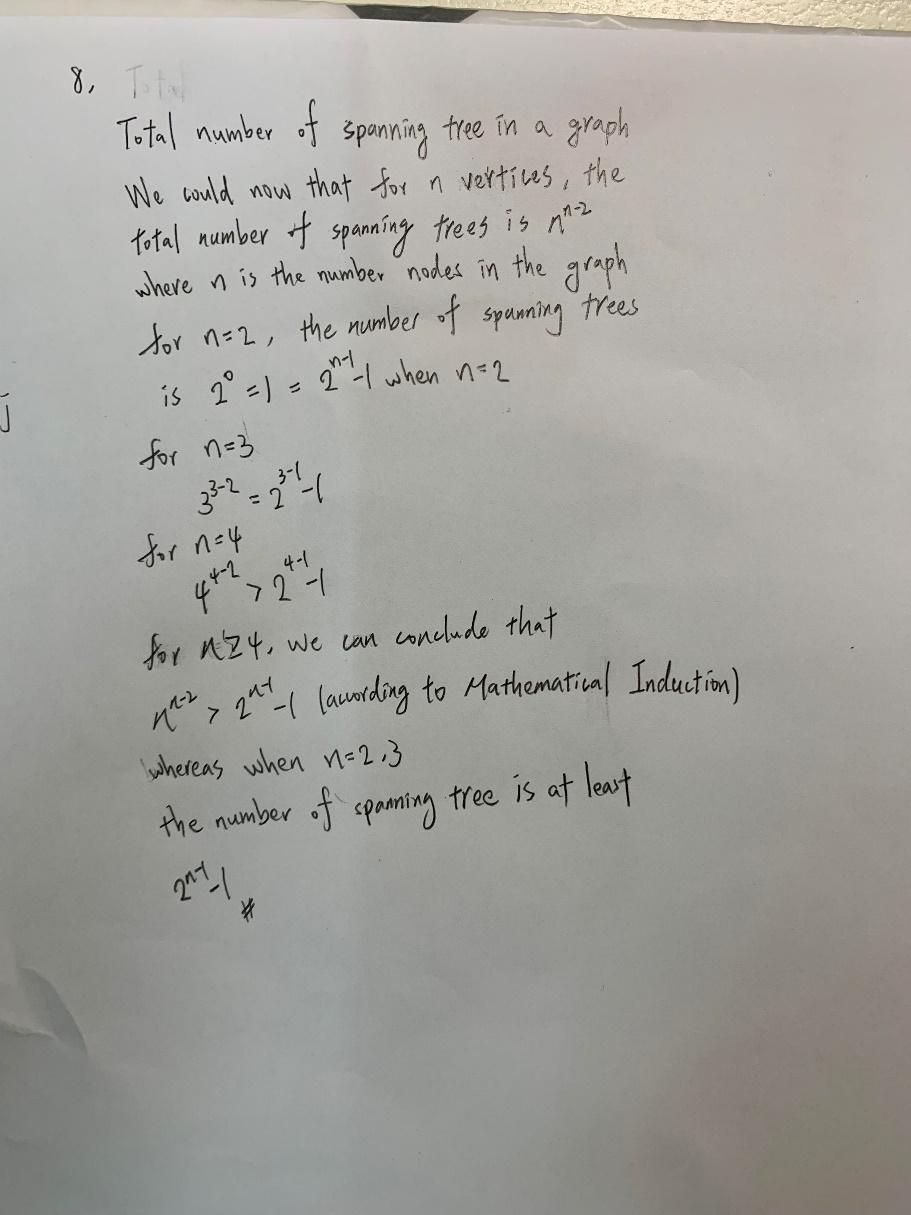 8, Total
Total number of spanning tree in a graph
We could now that for n vertices, the
total number of spanning trees is n^{n-2}
where n is the number nodes in the graph
for n=2, the number of spanning trees
is 2^0 =1 = 2^{n-1}-1 when n=2
for n=3
3^{3-2} = 2^{3-1}-1
for n=4
4^{4-2} > 2^{4-1}-1
for n≥4, we can conclude that
n^{n-2} > 2^{n-1}-1 (according to Mathematical Induction)
whereas when n=2,3
the number of spanning tree is at least
2^{n-1}-1 #